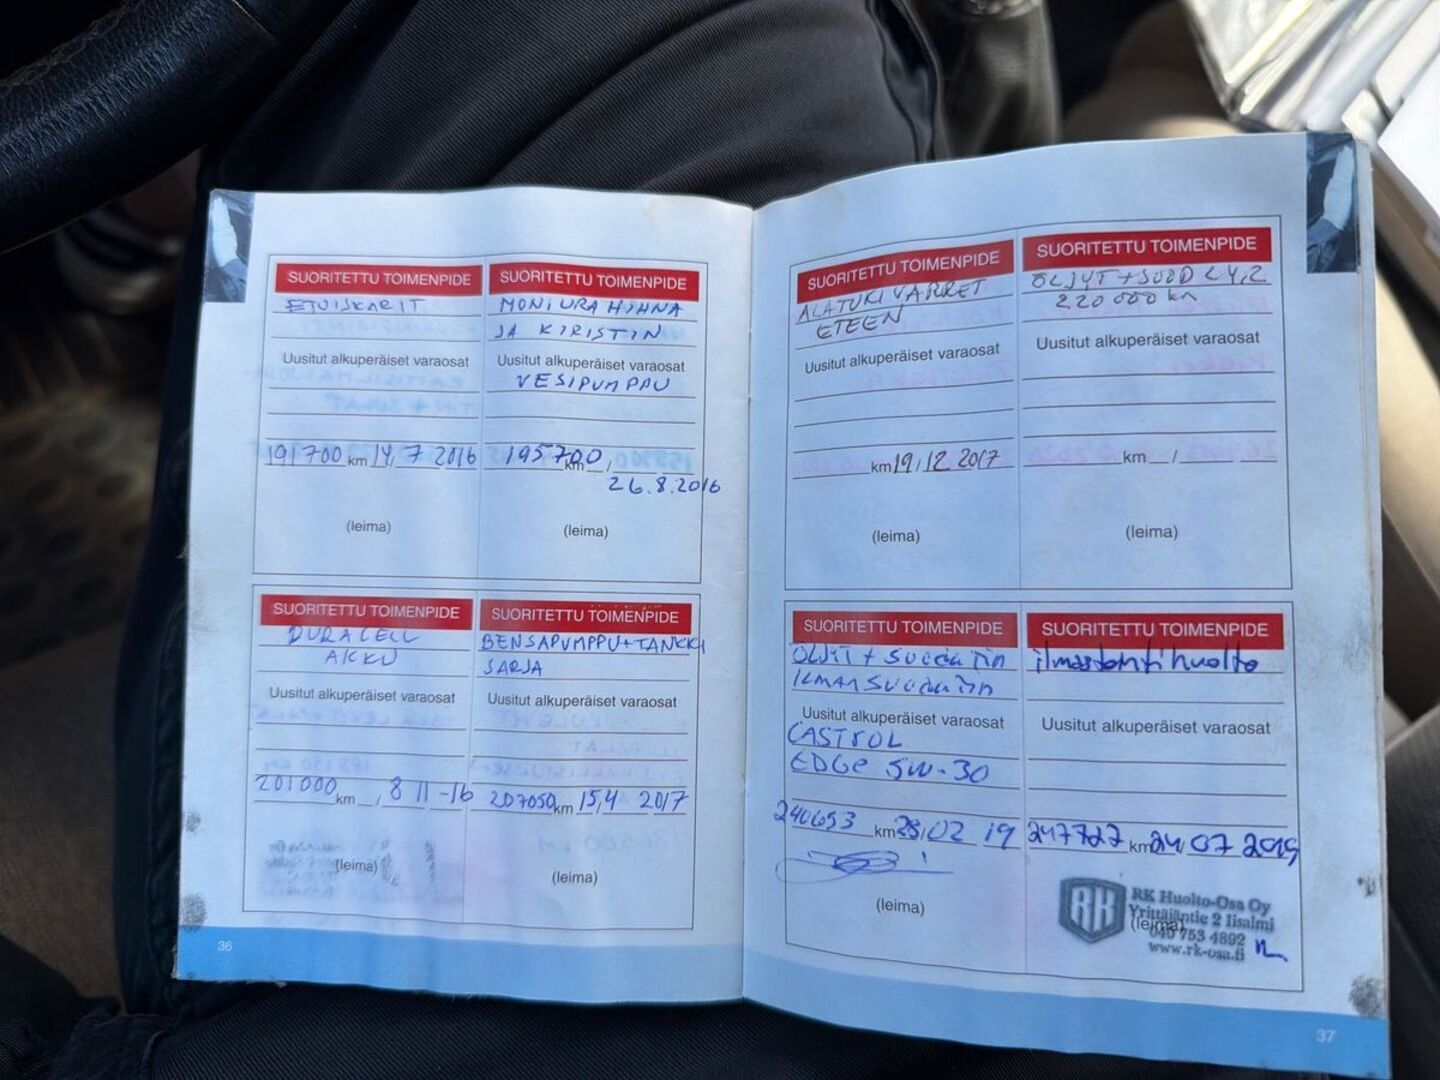 SUORITETTU TOIMENPIDE
ETUISKARIT
Uusitut alkuperäiset varaosat
191700 km 14,7 2016
(leima)
SUORITETTU TOIMENPIDE
MONIURAHIHNA
JA KIRISTIN
Uusitut alkuperäiset varaosat
VESIPUMPPU
195700 km /
26.8.2016
(leima)
SUORITETTU TOIMENPIDE
DURACELL
AKKU
Uusitut alkuperäiset varaosat
201000 km / 8 11 -16
(leima)
SUORITETTU TOIMENPIDE
BENSAPUMPPU+TANKKI
SARJA
Uusitut alkuperäiset varaosat
207050 km 15,4 2017
(leima)
36
SUORITETTU TOIMENPIDE
ALATUKIVARRET
ETEEN
Uusitut alkuperäiset varaosat
km 19,12 2017
(leima)
SUORITETTU TOIMENPIDE
ÖLJYT +
220 000 km
Uusitut alkuperäiset varaosat
km /
(leima)
SUORITETTU TOIMENPIDE
ÖLJYT + Suodatin
ILMANSUODATIN
Uusitut alkuperäiset varaosat
CASTROL
EDGE 5W-30
240653 km 28,02 19
(leima)
SUORITETTU TOIMENPIDE
ilmastointihuolto
Uusitut alkuperäiset varaosat
247727 km 24,07 2019
RK
RK Huolto-Osa Oy
Yrittäjäntie 2 Iisalmi
(leima)
040 753 4892
www.rk-osa.fi
37